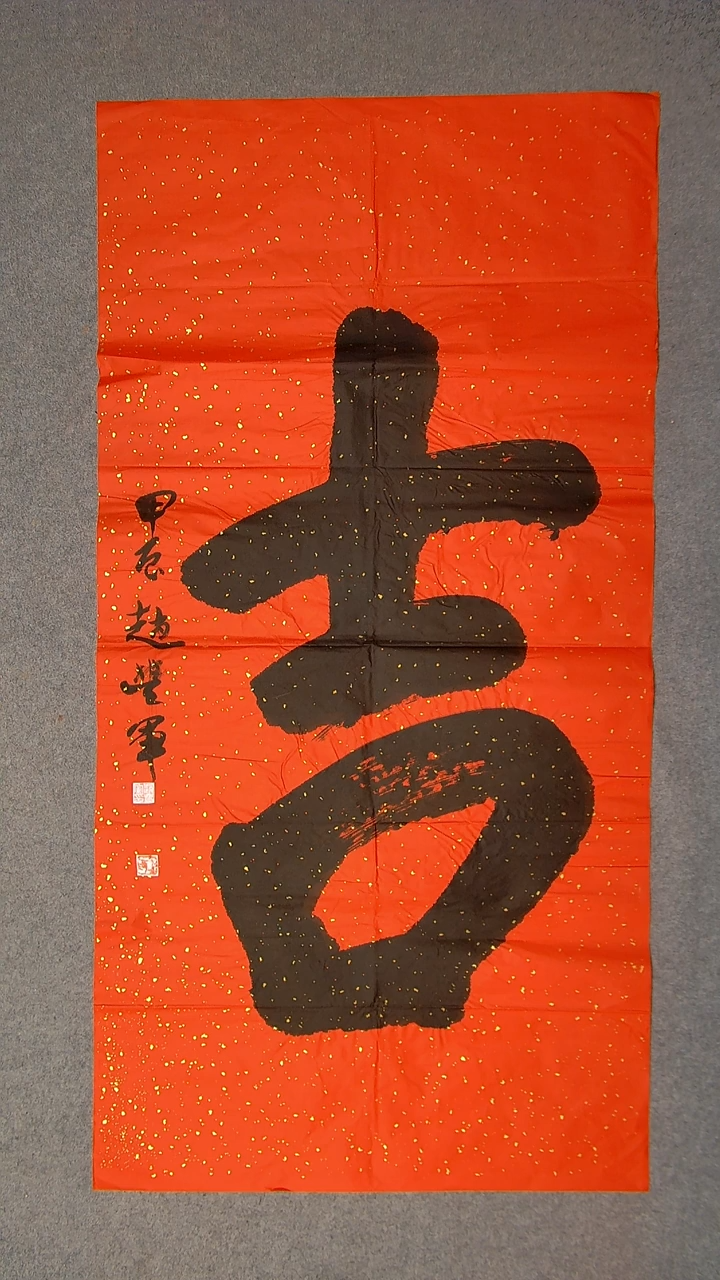 吉
甲辰 趙豐軍